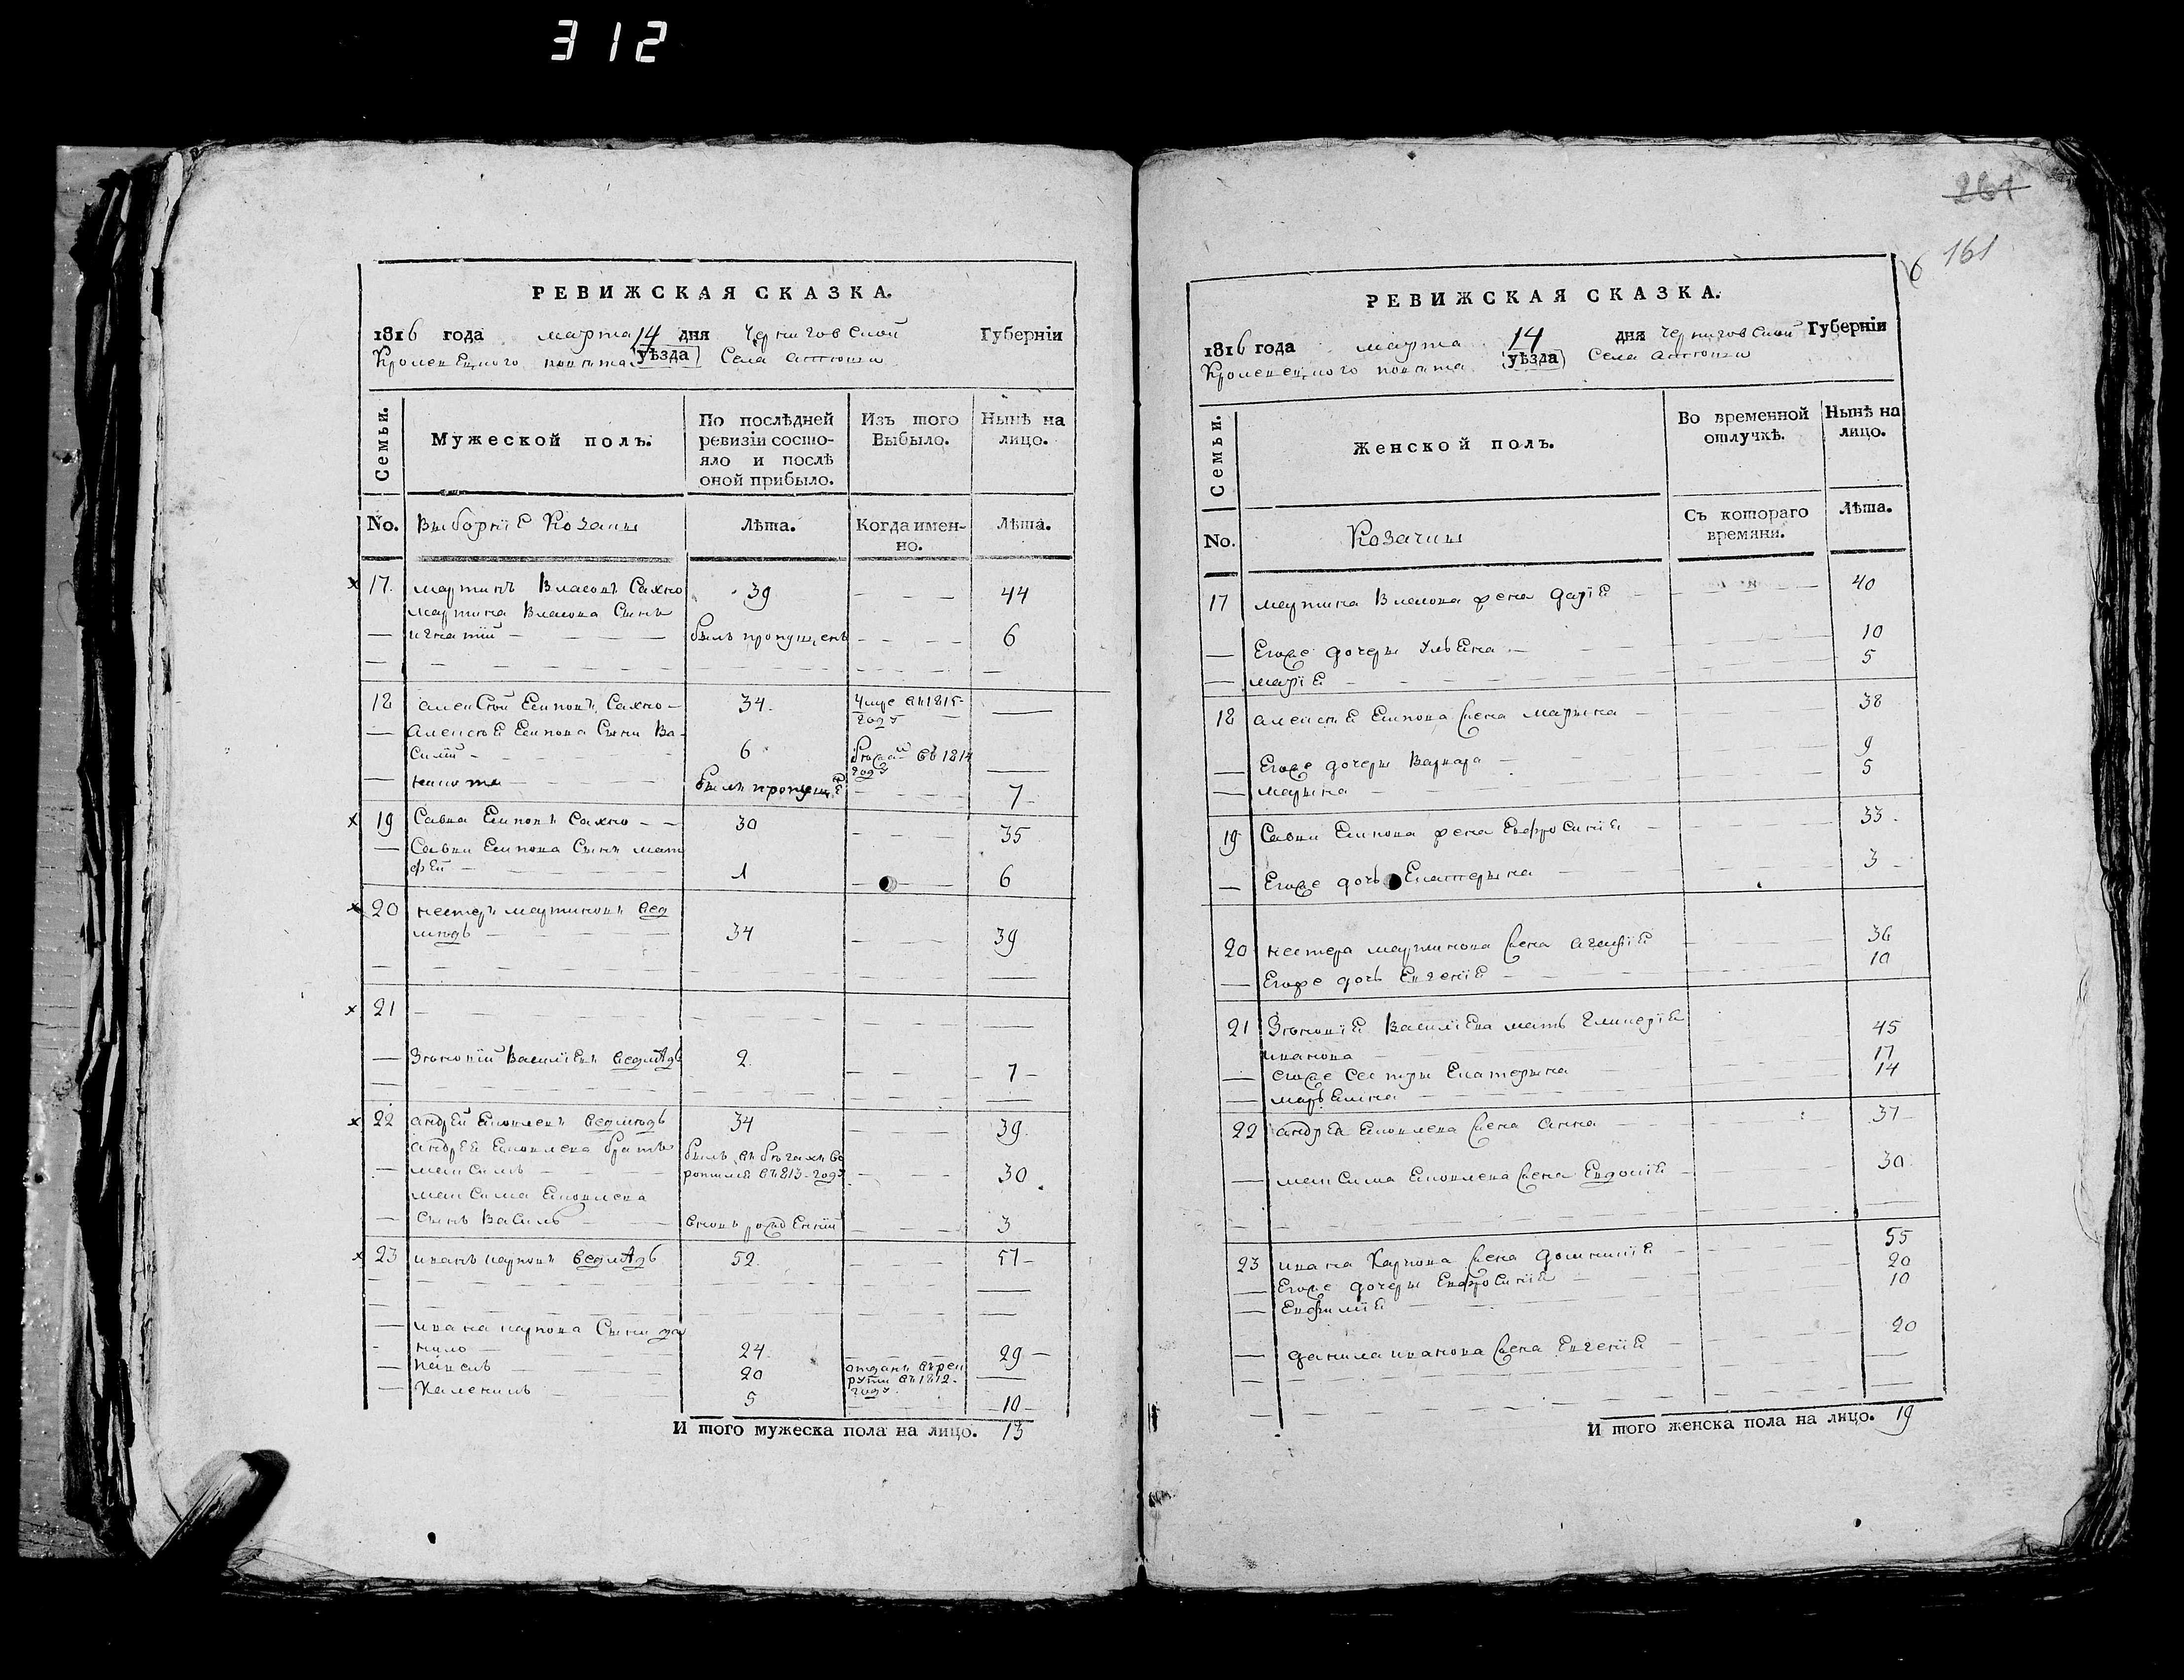 312
261
6 161
РЕВИЖСКАЯ СКАЗКА.
1816 года марта 14 дня Черниговской Губерніи
Кролевецкого повѣта (уѣзда) Села
Семьи.
Мужеской полъ.
По послѣдней
ревизіи состо-
яло и послѣ
оной прибыло.
Изъ того
Выбыло.
Нынѣ на
лицо.
No. Выборніе Козаки Лѣта. Когда имен-
но. Лѣта.
17. мартинъ Власовъ Сахно 39 44
мартина Власова Сынъ
игнатій былъ пропущенъ 6
18 алексѣй Емповъ Сахно 34. умре въ 1815-
году
алексѣЕ Емпова Сыни Ва-
силій 6 бѣжа въ 1814
году
никита былъ пропущ 7
19 Савка Емповъ Сахно 30 35
Савки Емпова Сынъ мат
фЕй 1 6
20 нестеръ мартиновъ вед
мѣдь 34 39
21
Зѣновій ВасилЕвъ ведмѣдь 2 7
22 андрЕй Яковлевъ ведмѣдь 34 39
андрЕЕ Яковлева братъ былъ въ бѣгахъ во
максимъ ротился въ 813-году 30
максима Яковлева
сынъ Василь вновь рожденній 3
23 иванъ карповъ ведмѣдь 52. 57
ивана карпова Сыни да
нило 24 29
павелъ 20 отданъ въ рек
руты въ 1812-
году.
Каленикъ 5 10
И того мужеска пола на лицо. 13
РЕВИЖСКАЯ СКАЗКА.
1816 года марта 14 дня Черниговской Губерніи
Кролевецкого повѣта (уѣзда) Села
Семьи.
Женской полъ.
Во временной
отлучкѣ.
Нынѣ на
лицо.
No. Козачки Съ котораго
времяни. Лѣта.
17 мартина Власова жена даріЕ 40
Егоже дочери УльЕна 10
маріЕ 5
18 алексѣЕ Емпова жена марина 38
Егоже дочери Варвара 9
марина 5
19 Савки Емпова жена ЕвфросиніЕ 33.
Егоже дочь Екатерина 3
20 нестера мартинова жена агафіЕ 36
Егоже дочь ЕвгеніЕ 10
21 ЗѣновіЕ ВасилЕва мать гликеріЕ 45
иванова
егоже сестри Екатерина 17
марЕмна 14
22 андрЕЕ Яковлева жена анна 37
максима Яковлева жена ЕвдокіЕ 30
23 ивана Карпова жена домникіЕ 55
Егоже дочери ЕвфросиніЕ 20
ЕвфиміЕ 10
данила иванова жена ЕвгеніЕ 20
И того женска пола на лицо. 19